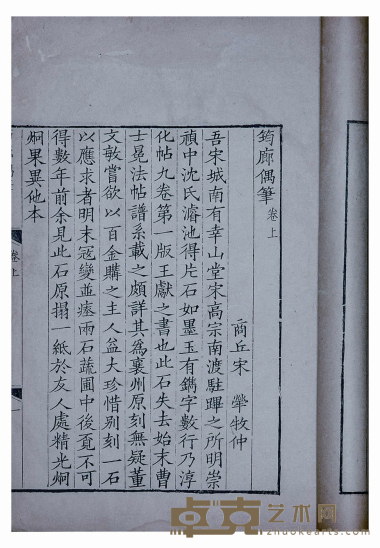 筠廊偶筆 卷上
商丘宋 犖牧仲
吾宋城南有幸山堂宋高宗南渡駐蹕之所明崇
禎中沈氏濬池得片石如墨玉有鐫字數行乃淳
化帖九卷第一版王獻之書也此石失去始末曹
士冕法帖譜系載之頗詳其爲襄州原刻無疑董
文敏嘗欲以百金購之主人益大珍惜别刻一石
以應求者明末宼變並瘞兩石蔬圃中後覔不可
得數年前余見此石原搨一紙於友人處精光炯
炯果異他本
卷上
卓克艺术网